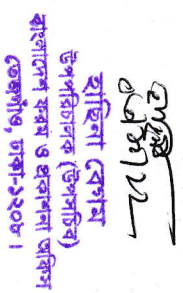 রাহিনা বেগম
উপপরিচালক (উপসচিব)
বাংলাদেশ ফরম ও প্রকাশনা অফিস
তেজগাঁও, ঢাকা-১২০৮।